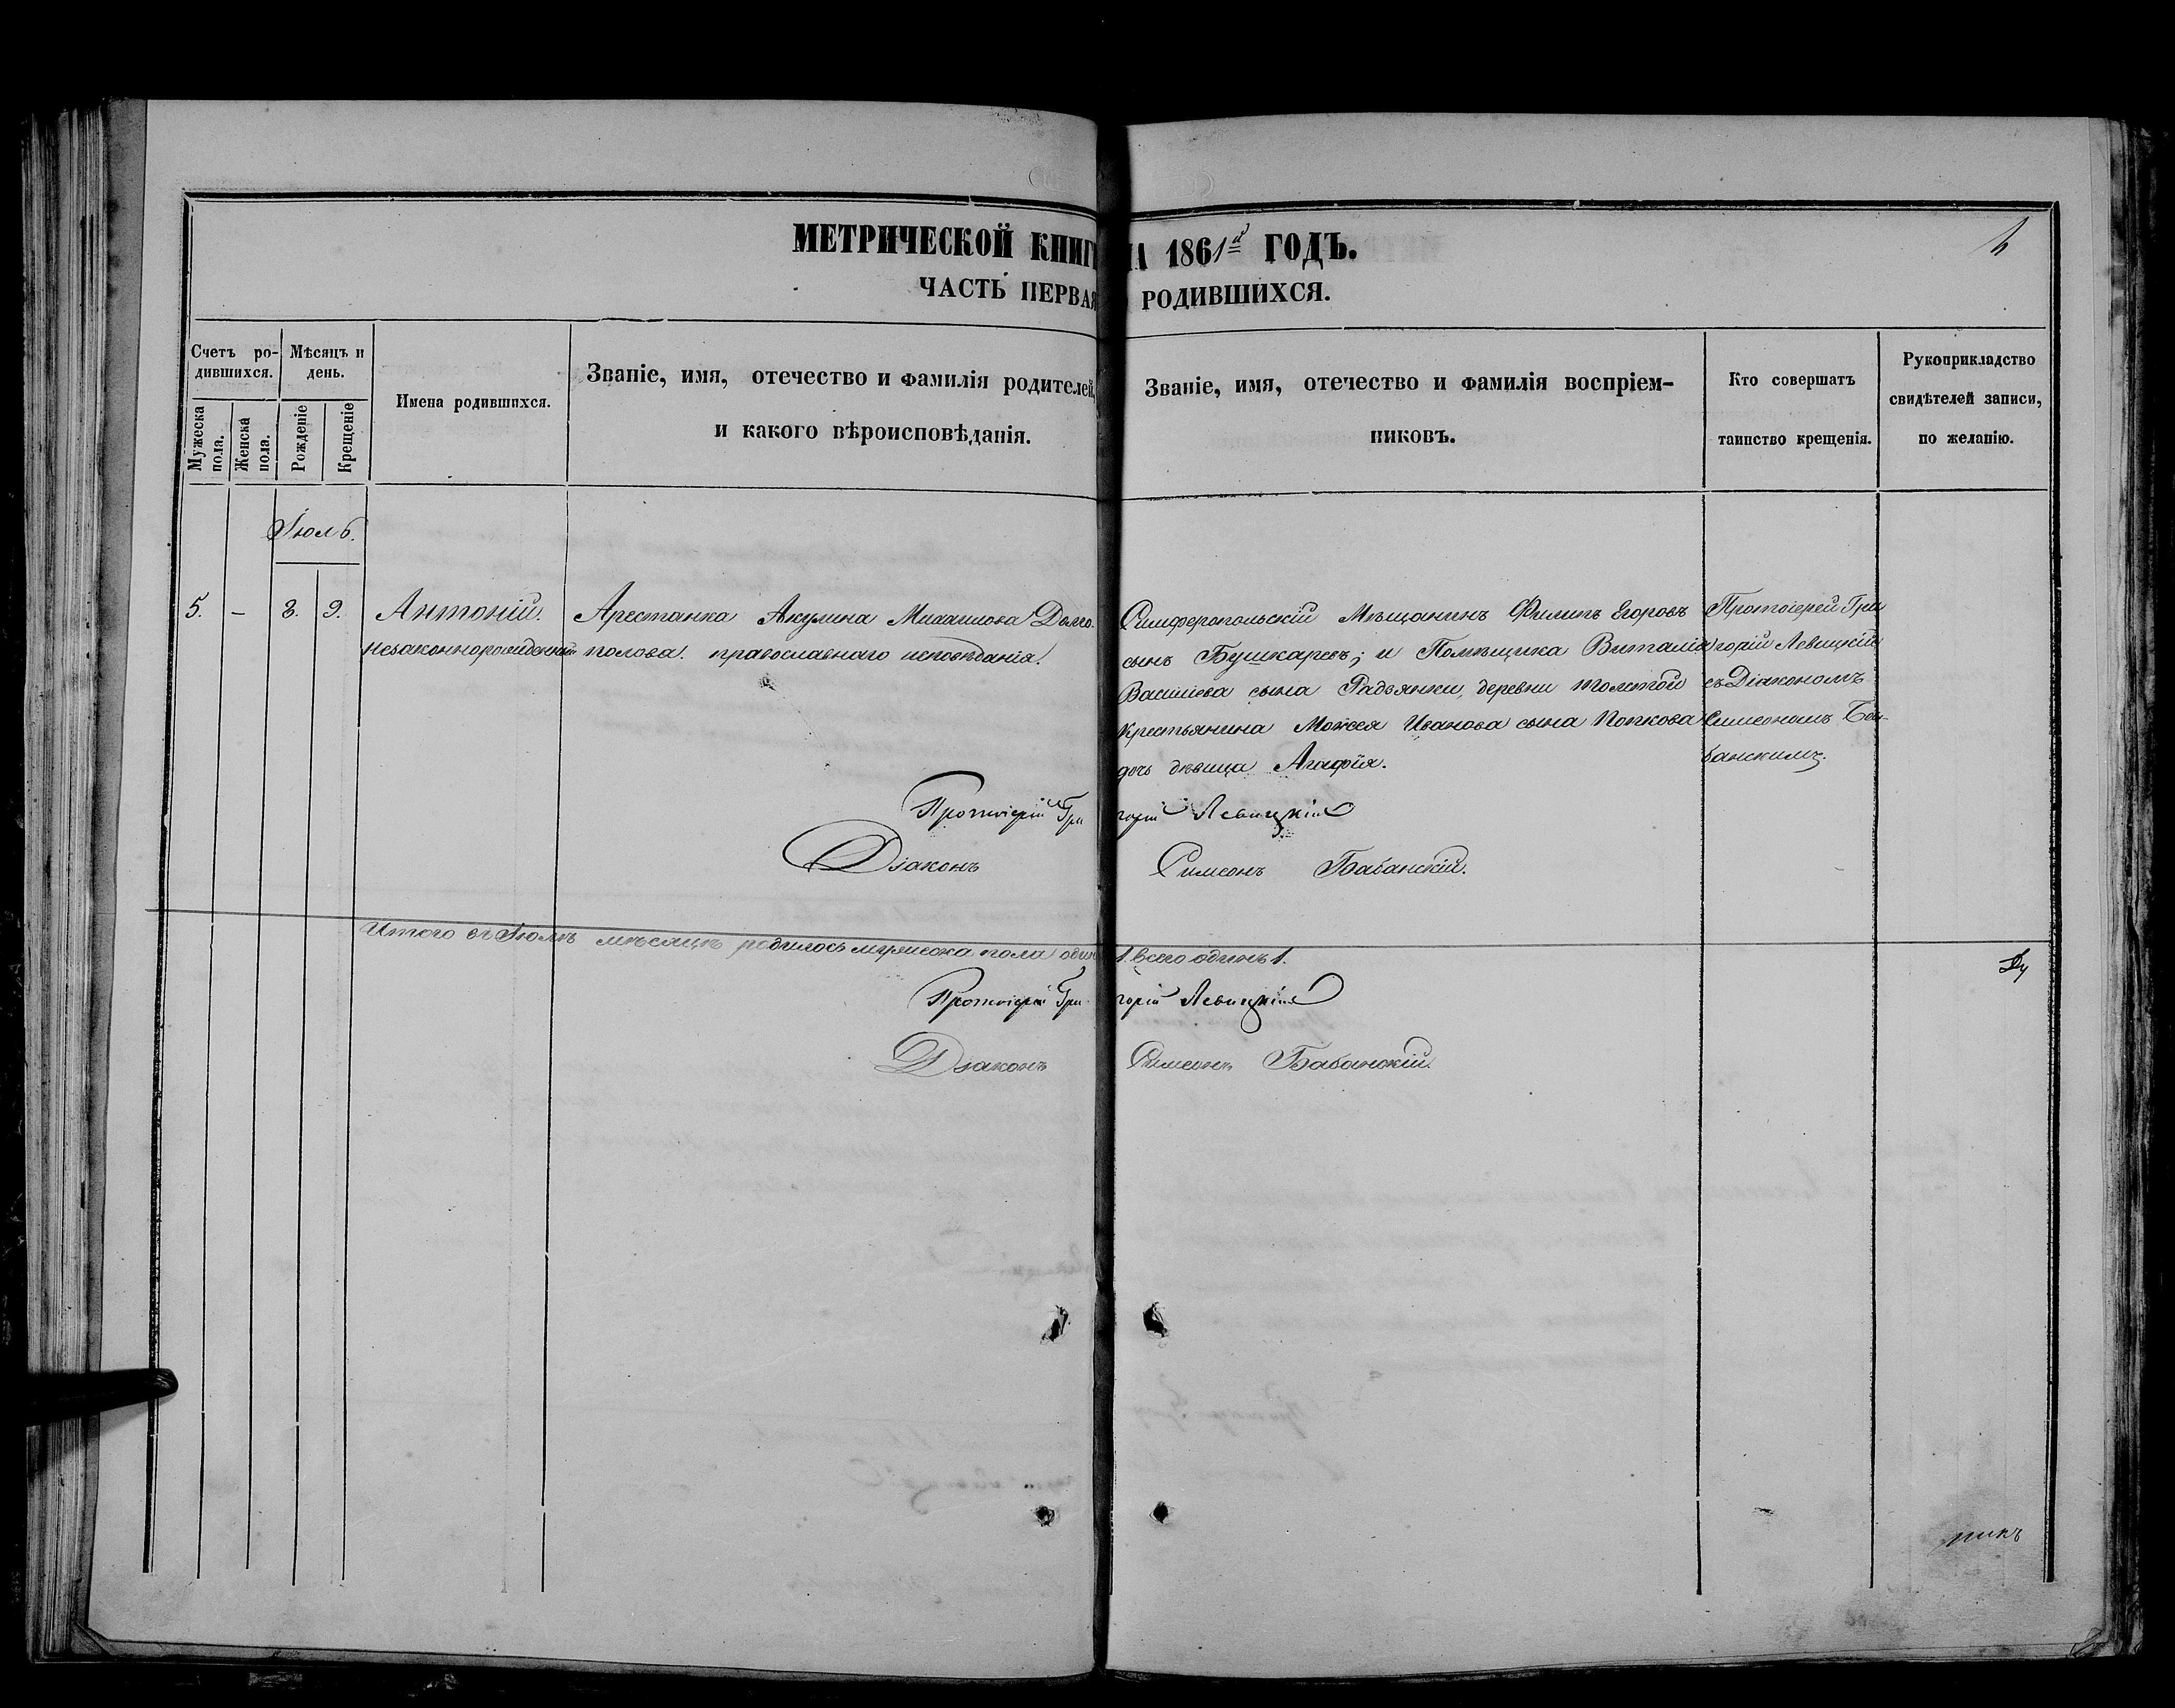 МЕТРИЧЕСКОЙ КНИГ НА 1861й ГОДЪ.
ЧАСТЬ ПЕРВАЯ РОДИВШИХСЯ.
Счетъ ро-
дившихся.
Мужеска пола.
Женска пола.
Мѣсяцъ и
день.
Рожденіе
Крещеніе
Имена родившихся.
Званіе, имя, отечество и фамилія родителей,
и какого вѣроисповѣданія.
Званіе, имя, отечество и фамилія воспріем-
никовъ.
Кто совершатъ
таинство крещенія.
Рукоприкладство
свидѣтелей записи,
по желанію.
Іюль.
5. – 8. 9.
Антоній.
незаконнорожденный
Арестанка Акулина Михаилова Долго-
полова. православнаго исповѣданія.
Симферопольскій Мѣщанинъ Филипъ Егоровъ
сынъ Бушкаревъ; и Помѣщика Виталія
Василіева сына Радвянки, деревни толстой
крестьянина Мойсея Иванова сына Попкова
дочь дѣвица Агафія.
Протоіерей Гри
горій Левицкій
съ Діакономъ
Симеономъ Ба-
банскимъ.
Протоіерей Григорій Левицкій
Діаконъ Симеонъ Бабанскій.
Итого въ Іюлѣ мѣсяцѣ родилось мужеска пола один 1. Всего одинъ 1.
Протоіерей Григорій Левицкій
Діаконъ Симеонъ Бабанскій.
никъ